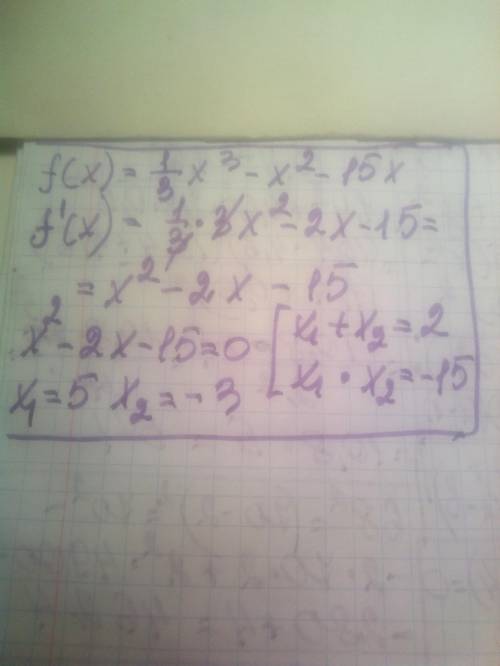 f(x) = 1/3 x³ - x² - 15x
f'(x) = 1/3 · 3x² - 2x - 15 =
= x² - 2x - 15
x² - 2x - 15 = 0 [ x₁ + x₂ = 2
x₁ = 5 x₂ = - 3 [ x₁ · x₂ = -15